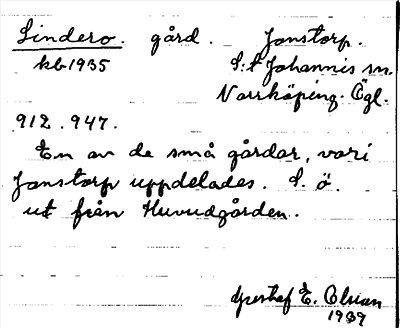 Lindero. gård. Janstorp.
kb 1935 S:t Johannis sn.
Norrköping. Ögl.
912.947.
En av de små gårdar, vari
Janstorp uppdelades. L. ö.
ut från Huvudgården.
Gusthaf E. Olsson
1939